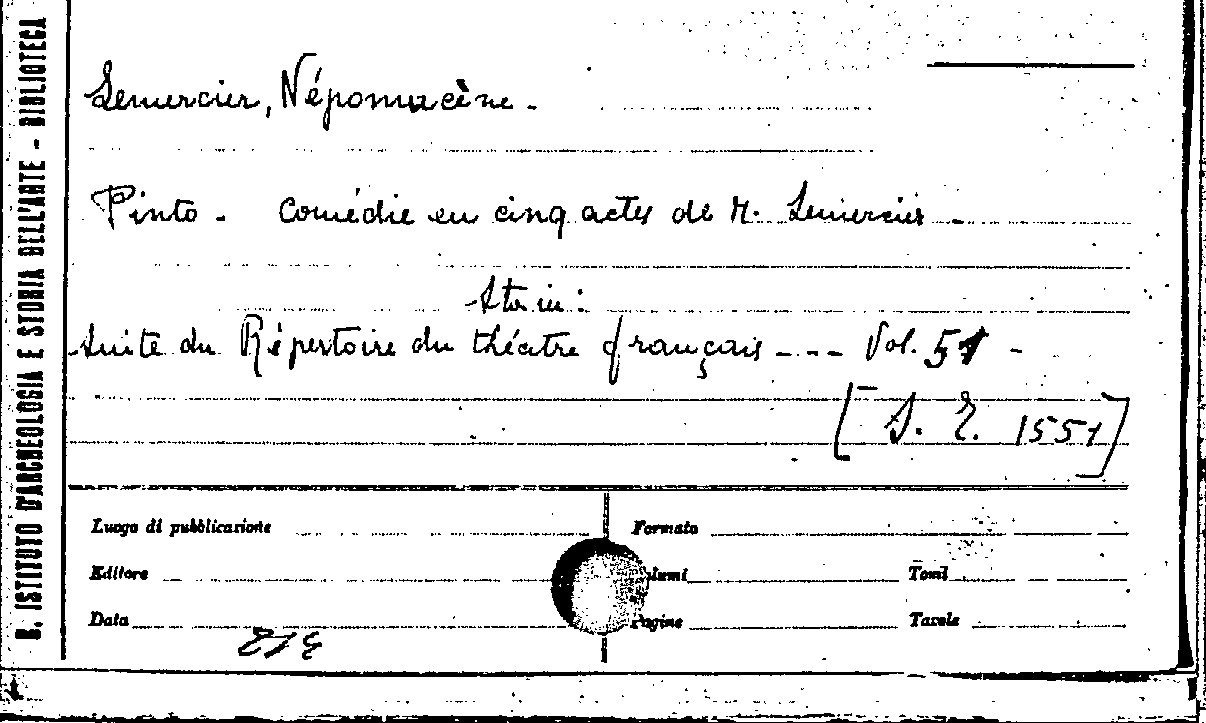 R. ISTITUTO D'ARCHEOLOGIA E STORIA DELL'ARTE - BIBLIOTECA
Lemercier, Népomucène.
Pinto. Comédie en cinq actes de M. Lemercier.
Sta in:
Suite du Répertoire du théâtre français --- Vol. 51 -
[S. E. 1551]
Luogo di pubblicazione
Formato
Editore
Tomi
Data
Pagine
Tavole